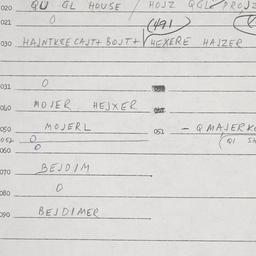 020 QU GL HOUSE / HOJZ QGL PROJZ
021 O (491
030 HAJNTKRE CAJT+ BOJT+ HEXERE HAJZER
031 O
040 MOJER HEJXER
050 MOJERL 051 - QMAJERK
052 O (QI SH
060 O
070 BEJDIM
080 O
090 BEJDIMER